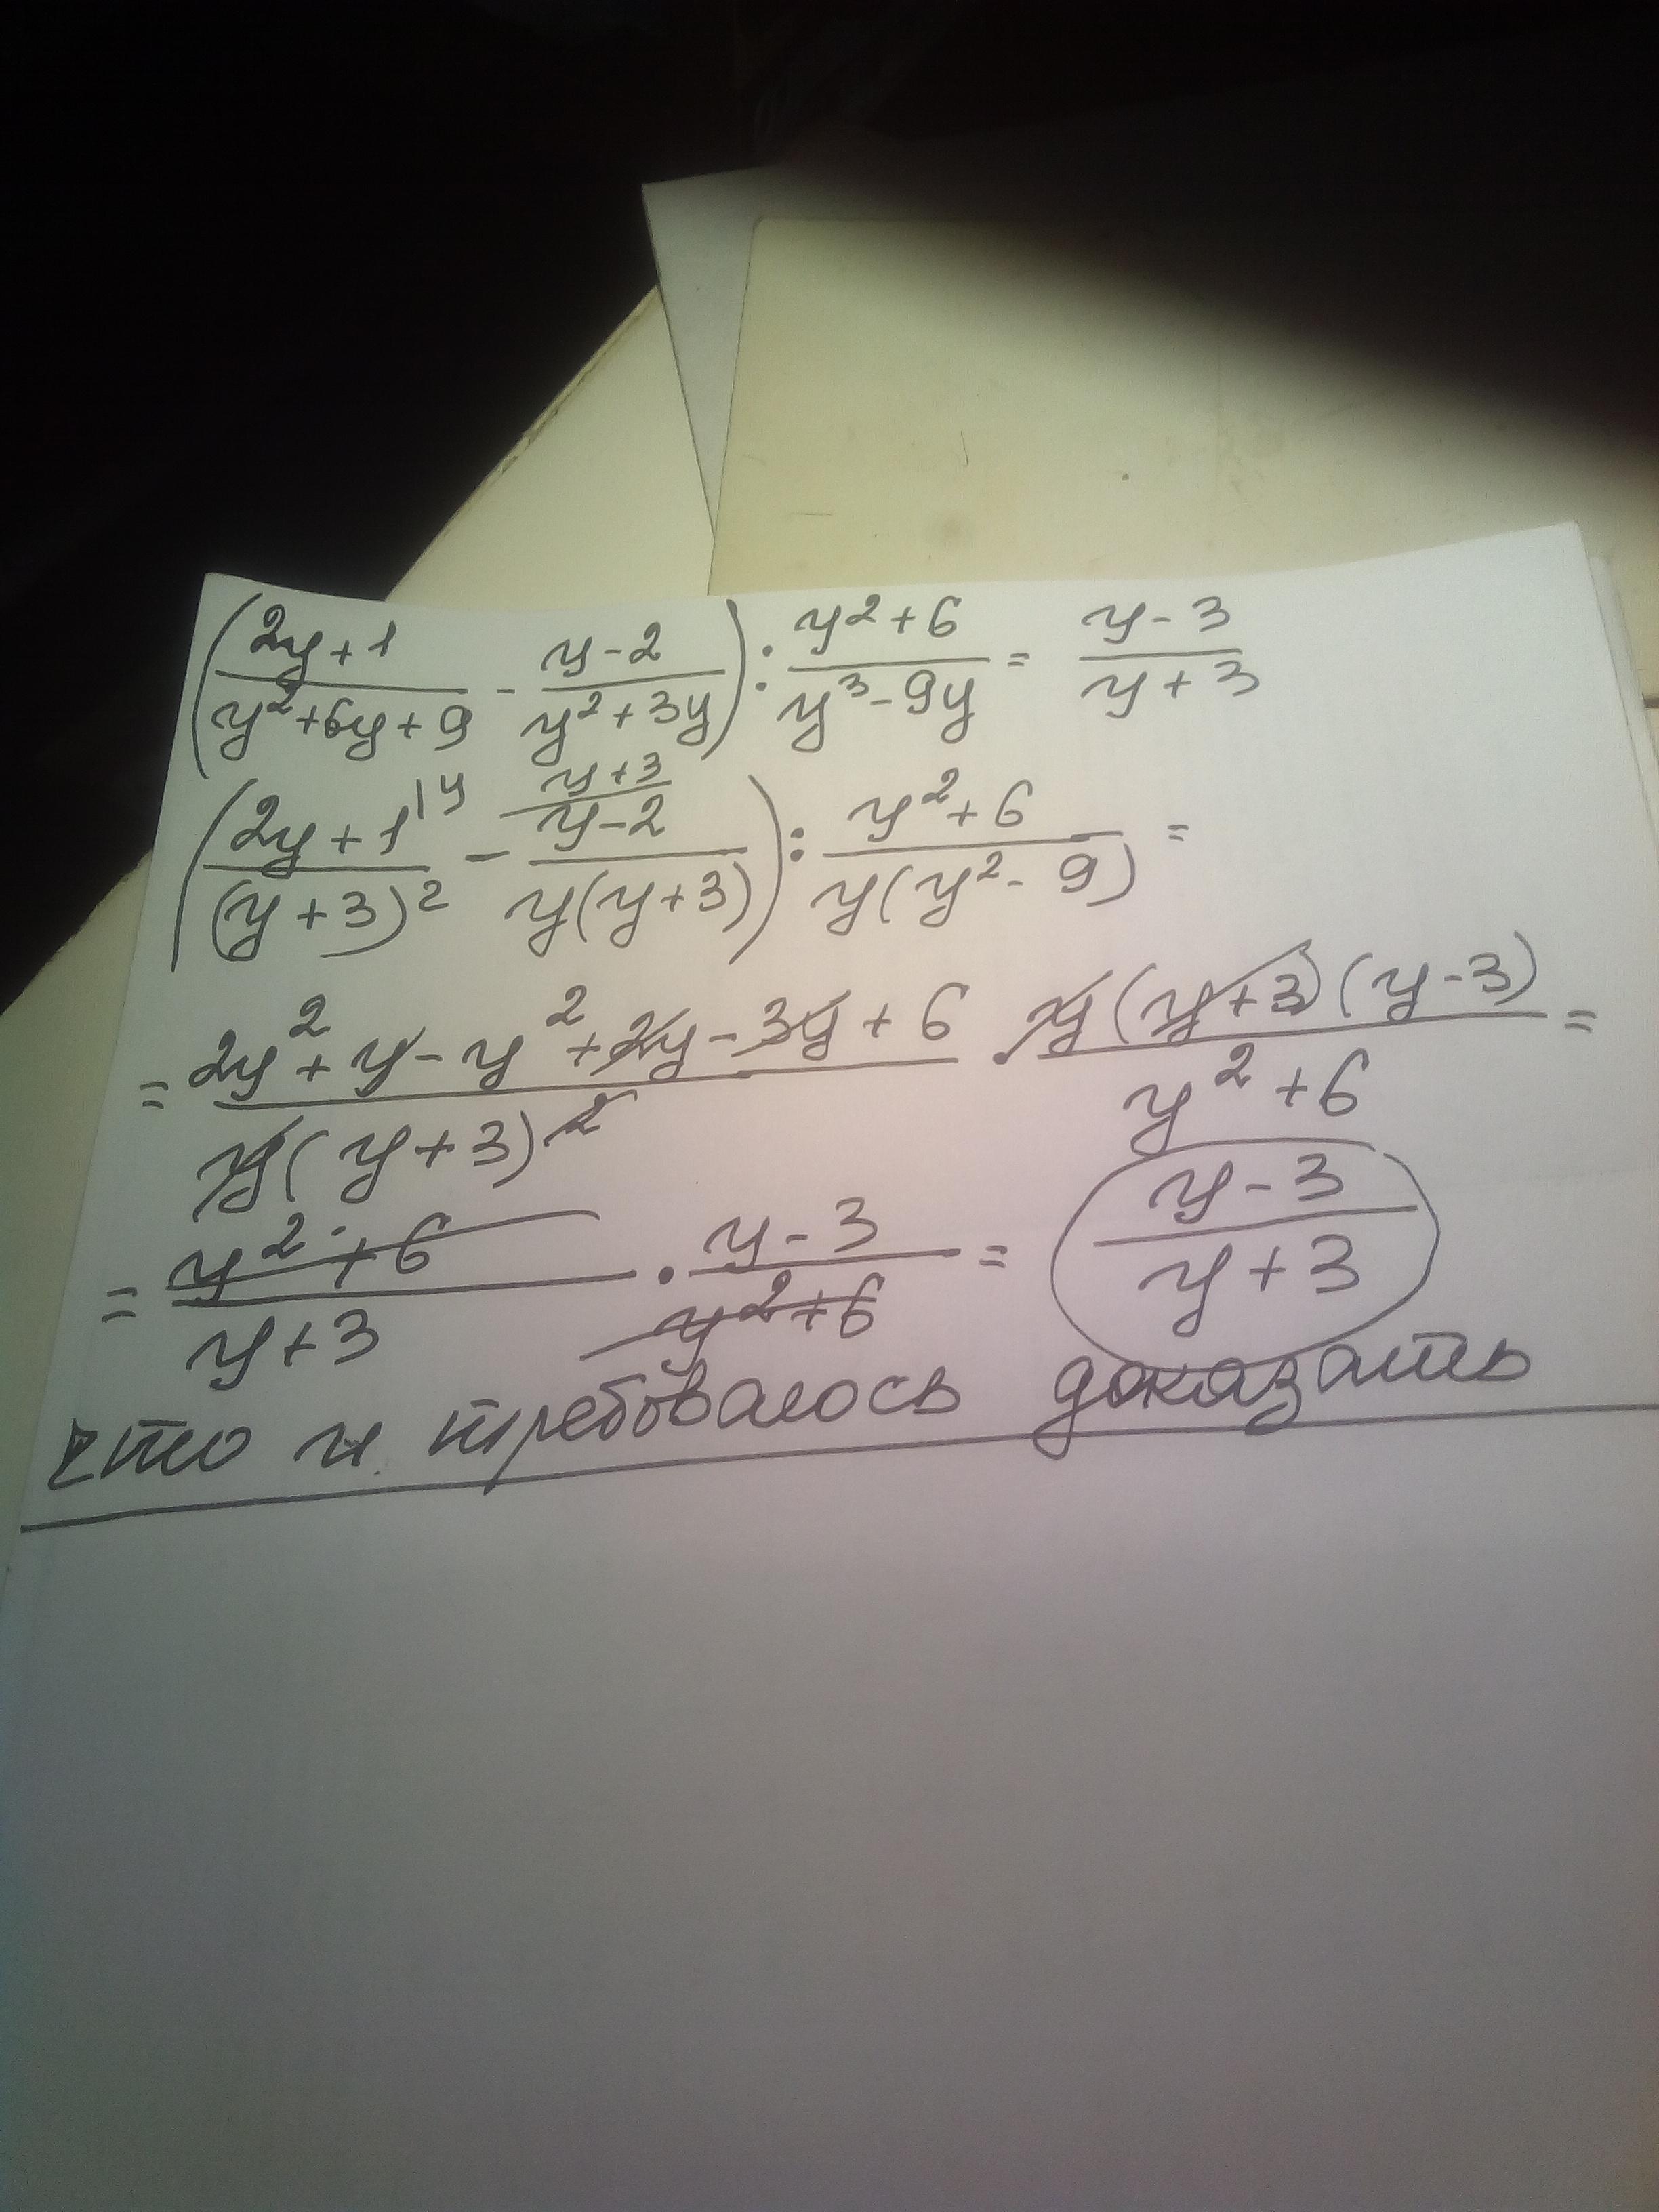 (2y+1/y²+6y+9 - y-2/y²+3y) : y²+6/y³-9y = y-3/y+3
(2y+1|y/(y+3)² - y+3/y-2/y(y+3)) : y²+6/y(y²-9) =
= 2y²+y-y²+2y-3y+6/y(y+3)² · y(y+3)(y-3)/y²+6 =
= y²+6/y+3 · y-3/y²+6 = y-3/y+3
что и требовалось доказать